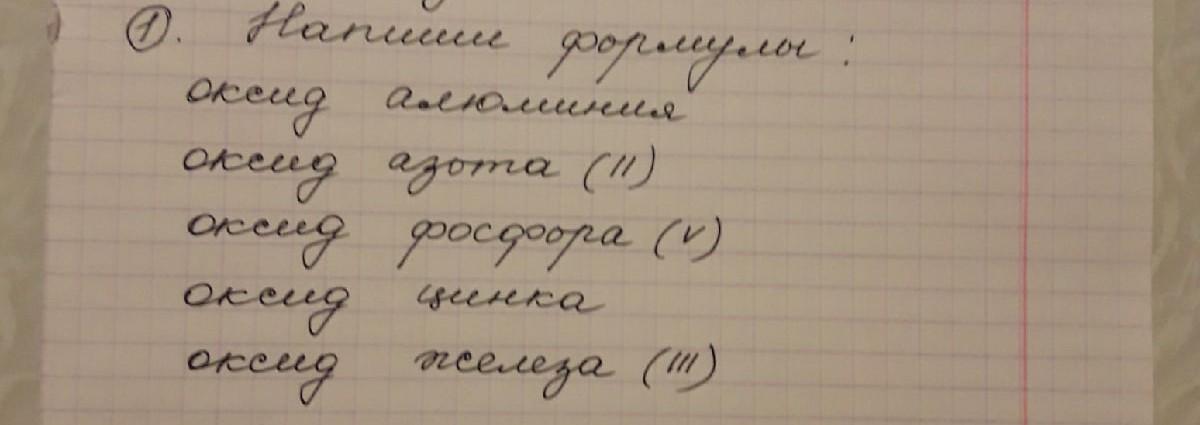 ①. Напиши формулы:
оксид алюминия
оксид азота (II)
оксид фосфора (V)
оксид цинка
оксид железа (III)